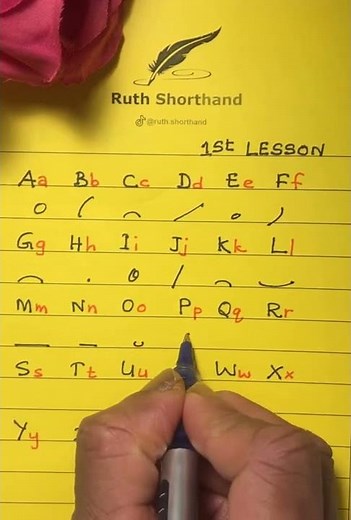 Ruth Shorthand
@ruth.shorthand
1st LESSON
Aa Bb Cc Dd Ee Ff
Gg Hh Ii Jj Kk Ll
Mm Nn Oo Pp Qq Rr
Ss Tt Uu Ww Xx
Yy